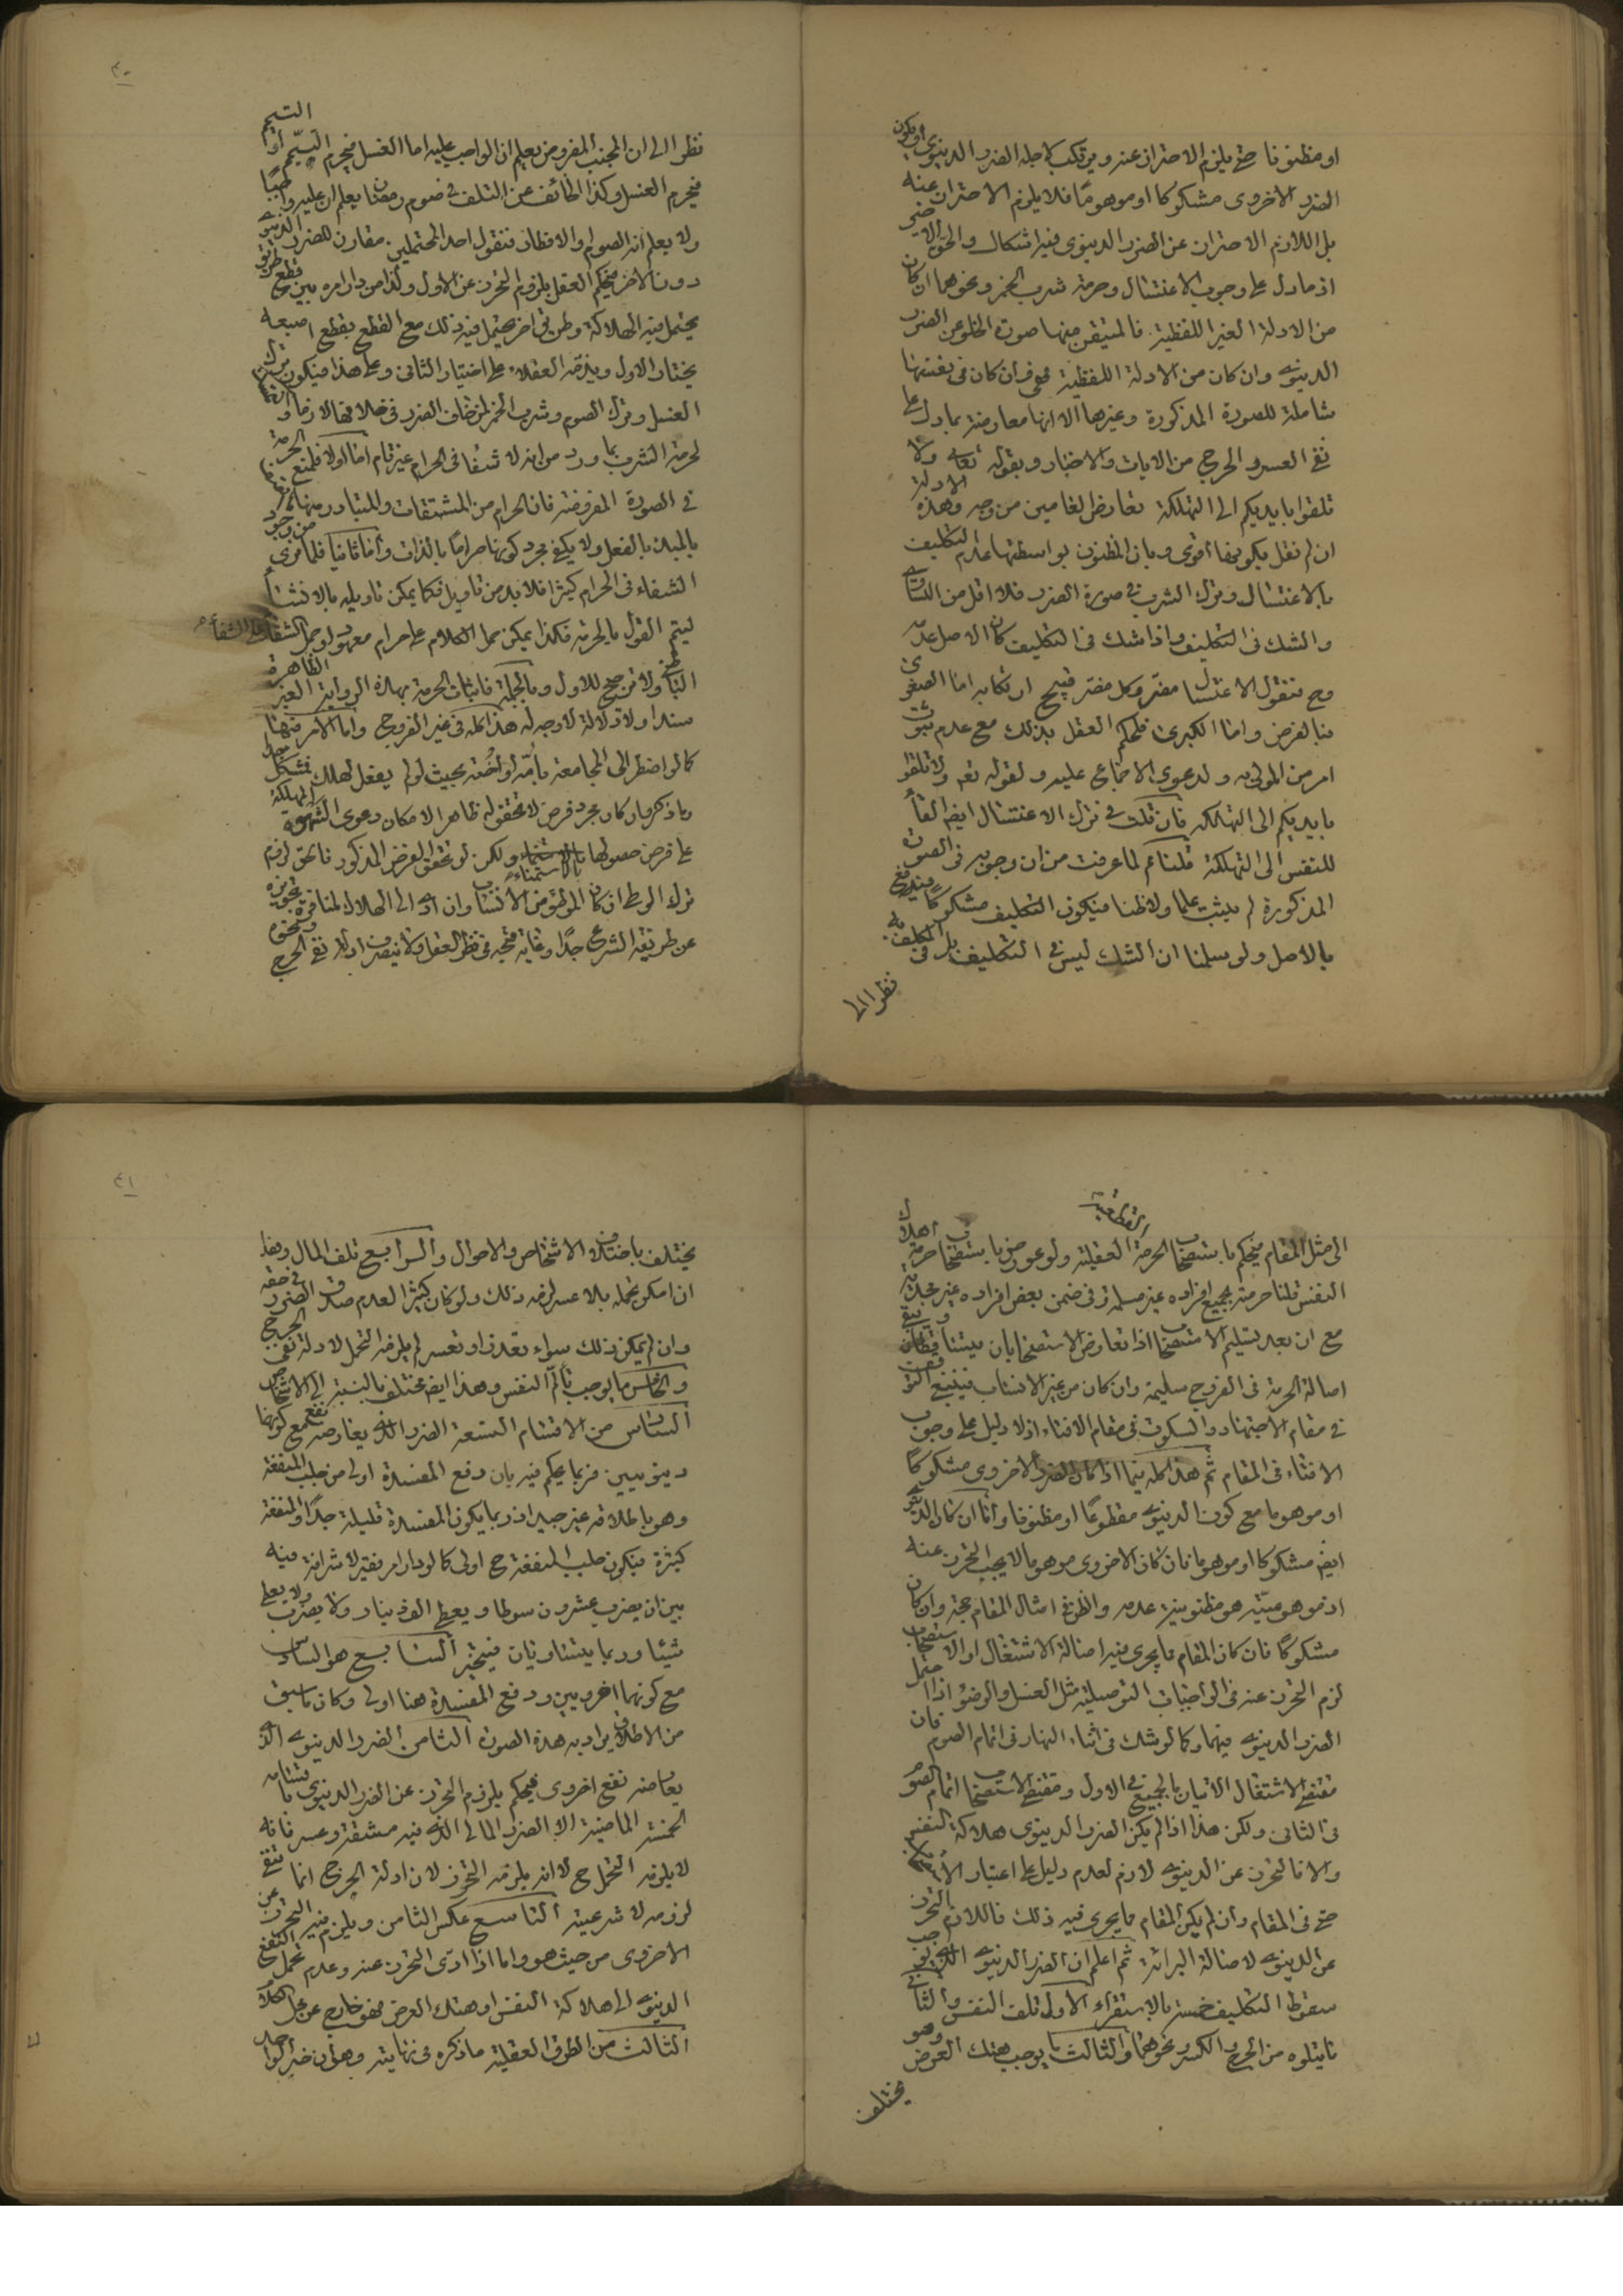 او مظنونا حتى يلزم الاحتراز عنه ويرتكب لاجله الضرر الدينوى او يكون
الضرر الاخروى مشكوكا او موهوما فلا يلزم الاحتراز عنه
بل اللازم الاحتراز عن الضرر الدينوى فيه اشكال والحق الاخير
اذ ما دل على وجوب الاغتسال وحرمة شرب الخمر ونحوهما ان كان
من الادلة الغير اللفظية فالمتيقن منها صورة الخلو عن الضرر
الدينوى وان كان من الادلة اللفظية فهى وان كان فى نفسها
شاملة للصورة المذكورة وغيرها الا انها معارضة بما دل على
نفى العسر والحرج من الايات والاخبار وبقوله تعالى ولا
تلقوا بايديكم الى التهلكة تعارض العامين من وجه وهذه الادلة
ان لم نقل بكونها اقوى وبان المظنون بواسطتها عدم التكليف
بالاغتسال وترك الشرب فى صورة الضرر فلا اقل من التساوى
والشك فى التكليف واذا شك فى التكليف كان الاصل عدمه
وح نقول الاغتسال مضر وكل مضر قبيح ارتكابه اما الصغرى
فبالفرض واما الكبرى فلحكم العقل بذلك مع عدم ثبوت
امر من المولى به ولدعوى الاجماع عليه ولقوله تعم ولا تلقوا
بايديكم الى التهلكه فان قلت فى ترك الاغتسال ايضا القاء
للنفس الى التهلكة قلنا نعم لما عرفت من ان وجوبه فى الصورة
المذكورة لم يثبت علما ولا ظنا فيكون التكليف مشكوكا فيندفع
بالاصل ولو سلمنا ان الشك ليس فى التكليف بل فى المكلف به
نظرا الى
٤٠
نظرا الى ان المجنب المفروض يعلم ان الواجب عليه اما الغسل فيحرم التيمم او التيمم
فيحرم الغسل وكذا الخائف عن التلف فى صوم رمضان يعلم ان عليه واجبا
ولا يعلم انه الصوم او الافطار فنقول احد المحتملين مقارن للضرر الدينوى
دون الاخر فيحكم العقل بلزوم التحرز عن الاول ولذا من دار امره بين قطع طريق
يحتمل فيه الهلاكة وطريق اخر يحتمل فيه ذلك مع القطع بقطع اصبعه
يختار الاول ويذمه العقلاء على اختيار الثانى وعلى هذا فيكون ترك
الغسل وترك الصوم وشرب الخمر لمن خاف الضرر فى خلافها لازما و
لحرمة الشرب بما ورد من انه لا شفا فى الحرام غير تام اما اولا فلمنع الحرمة
فى الصورة المفروضة فان الحرام من المشتقات والمتبادر منها
بالمبدء بالفعل ولا يكفى مجرد كونها حراما بالذات واما ثانيا فلما نرى من وجود
الشفاء فى الحرام كثيرا فلا بد من تاويل فكما يمكن تاويله بالانشاء
ليتم القول بالحرمة فكذا يمكن حمل الكلام على حرام معهود او حمل الشفاء على الشفاء
ولا ترجيح للاول وبالجملة فاثبات الحرمة بهذه الرواية الغير الظاهرة
سندا ولا دلالة لا وجه له هذا كله فى غير الفروج واما الامر فيها
كما لو اضطر الى المجامعة بامه او اخته بحيث لو لم يفعل لهلك فمشكل
وما ذكر وان كان مجرد فرض لا تحقق له ظاهرا لامكان دعوى
على فرض حصولها بالاستمناء ولكن لو تحقق الفرض المذكور فالحق لزوم
ترك الوطى ان كان الموطوء من الانساب وان ادى الى الهلاك لمنافرة تجويزه
عن طريقة الشرع جدا وغاية قبحه فى نظر العقل ولا ينصرف ادلة نفى الحرج ونحوه
الى مثل المقام فيحكم باستصحاب الحرمة العقلية القطعية ولو عورض باستصحاب حرمة اهلاك
النفس قلنا حرمته بجميع افراده غير مسلمة وفى ضمن بعض افراده غير مجدية
مع ان بعد تسليم الاستصحاب اذا تعارض الاستصحابان يتساقطان ويبقى
اصالة الحرمة فى الفروج سليمة وان كان من غير الانساب فينبغى التوقف
فى مقام الاجتهاد والسكوت فى مقام الافتاء اذ لا دليل على وجوب
الافتاء فى المقام ثم هذا كله فيما اذا كان الضرر الاخروى مشكوكا
او موهوما مع كون الدينوى مقطوعا او مظنونا واما ان كان الدينوى
ايضا مشكوكا او موهوما فان كان الاخروى موهوما لا يجب التحرز عنه
اذ موهوميته هو مظنونية عدمه والظن فى امثال المقام حجة وان كان
مشكوكا فان كان المقام ما يجرى فيه اصالة الاشتغال او الاستصحاب
لزم التحرز عنه فى الواجبات التوصيلية مثل الغسل والوضوء اذا احتمل
الضرر الدينوى فيهما وكما لو شك فى اثناء النهار فى اتمام الصوم فان
مقتضى الاشتغال الاتيان بالجميع فى الاول ومقتضى الاستصحاب اتمام الصوم
فى الثانى ولكن هذا اذا لم يكن الضرر الدينوى هلاكة النفس
والا فالتحرز عن الدينوى لازم لعدم دليل على اعتبار
حتى فى المقام وان لم يكن المقام ما يجرى فيه ذلك فاللازم التحرز
عن الدينوى لاصالة البرائة ثم اعلم ان الضرر الدينوى الذى يوجب
سقوط التكليف خمسة بالاستقراء الاول تلف النفس والثانى
ما يتلوه من الجرح والكسر ونحوهما والثالث ما يوجب هتك العرض وهو
يختلف
٤١
يختلف باختلاف الاشخاص والاحوال والرابع تلف المال وهذا
ان امكن تحمله بلا عسر لزمه ذلك ولو كان كثيرا لعدم صدق الضرر فى حقه
وان لم يمكن ذلك سواء تعذر او تعسر لم يلزمه التحمل لادلة نفى الحرج
والخامس ما يوجب تألم النفس وهذا ايضا يختلف بالنسبة الى الاشخاص
السادس من الاقسام التسعة الضرر الذى يعارضه نفع مع كونهما
دينويين فربما يحكم فيه بان دفع المفسدة اولى من جلب المنفعة
وهو باطلاقه غير جيد اذ ربما يكون المفسدة قليلة جدا والمنفعة
كثيرة فيكون جلب المنفعة ح اولى كما لو دار امر فقير لا شرافة فيه
بين ان يضرب عشرون سوطا ويعطى الف دينار ولا يضرب ولا يعطى
شيئا وربما يتساويان فيتخير السابع هو السادس
مع كونهما اخرويين ودفع المفسدة هنا اولى وكان ما سبق
من الاطلاق يراد به هذه الصورة الثامن الضرر الدينوى الذى
يعارضه نفع اخروى فيحكم بلزوم التحرز عن الضرر الدينوى باقسامه
الخمسة الماضية الا الضرر المالى الذى فيه مشقة وعسر فانه
لا يلزمه التحمل ح لا انه يلزمه التحرز لان ادلة الحرج انما تنفى
لزومه لا شرعيته التاسع عكس الثامن ويلزم فيه التحرز عن
الاخروى من حيث هو واما اذا ادى التحرز عنه وعدم تحمل النفع
الدينوى الى هلاكة النفس او هتك العرض فهو خارج عن محل الكلام
الثالث من الطرق العقلية ما ذكره فى نهايته وهو ان خبر الواحد